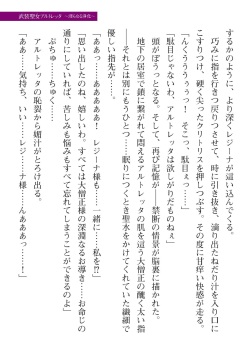 武装聖女アルトレッタ
するかのように、より深くレジーナが這い込んでくる。
巧みに指を行きつ戻りつさせて、時に引き抜き、滴り出たねだり汁を入り口に
こすりつけ、硬く尖ったクリトリスを押しつぶす。その度に甘痒い快感が走る。
「んくううううぅっ！　そこっ、駄目ぇっ……」
「駄目じゃないわ。アルトレッタは欲しがりだものねぇ」
頭がぼうっとなる。そして、再び記憶が――禁断の情景が脳裏に描かれた。
地下の居室で鎖に繋がれて悶えるアルトレッタの肌を這う大僧正の醜く太い指
――それとは別に……眠りにつくとき聖水をかけてくれていた繊細で
優しい指先が……。
「ああっ……あああああっ！　レジーナ様も……一緒に……私を!?」
「思い出したのね、嬉しいわ。すべては大僧正様の深淵なるお導き……お命じの
通りにしていれば、苦しみも悩みもすべて忘れてしまうことができるのよ」
ぷちゅ……ちゅく……。
アルトレッタの恥裂から媚汁がとろけ出る。
「ああ……気持ち、いい……レジーナ様……んああああっ……！」